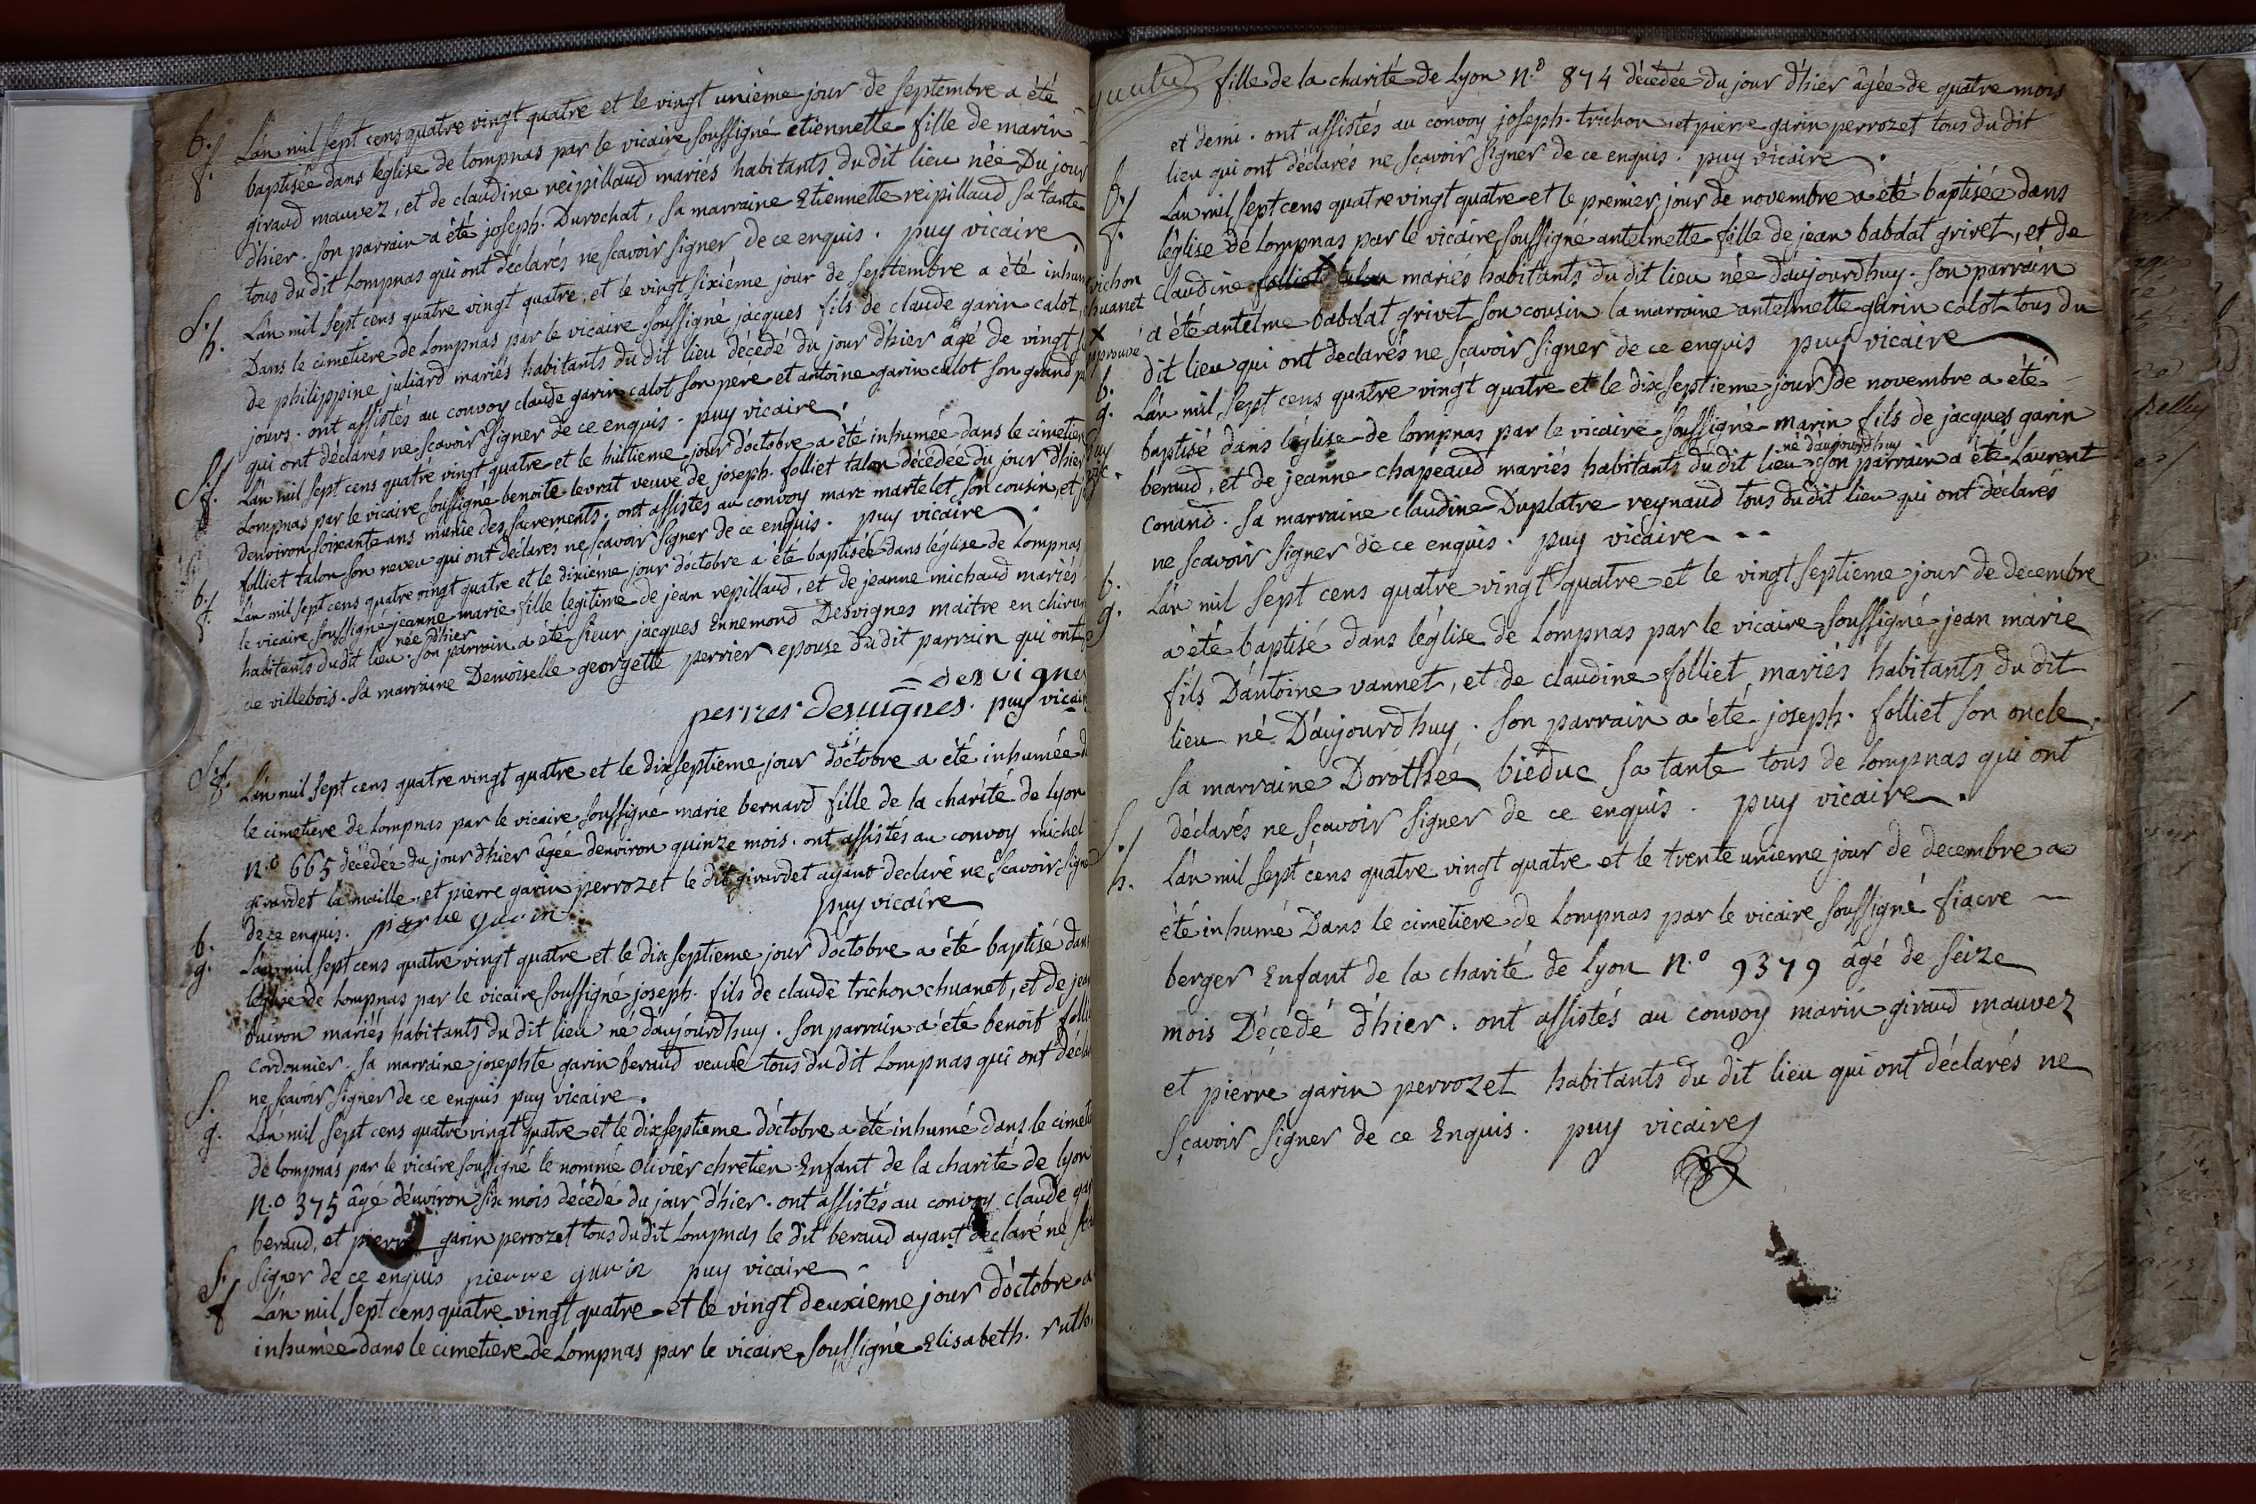 b.
f.
L'an mil sept cens quatre vingt quatre et le vingt unième jour de septembre a été
baptisée dans l'église de lompnas par le vicaire soussigné etiennette fille de marin
giraud mauvez, et de claudine reipillaud mariés habitants du dit lieu née Du jour
d'hier. son parrain a été joseph. Durochat, sa marraine Etiennette reipillaud sa tante
tous du dit Lompnas qui ont déclarés ne scavoir signer de ce enquis. puy vicaire
S.
h.
L'an mil sept cens quatre vingt quatre, et le vingt sixième jour de septembre a été inhumé
Dans le cimetiere de Lompnas par le vicaire soussigné jacques fils de claude garin calot,
de philippine juliard mariés habitants du dit lieu décédé du jour d'hier âgé de vingt
jours. ont assistés au convoy claude garin calot son pere et antoine garin calot son grand
qui ont déclarés ne scavoir signer de ce enquis. puy vicaire.
S.
f.
L'an mil sept cens quatre vingt quatre et le huitieme jour d'octobre a été inhumée dans le cimetier
Lompnas par le vicaire soussigné benoite levrat veuve de joseph. folliet talon décédée du jour d'hier
d'environ soixante ans munie des sacrements. ont assistés au convoy marc martelet son cousin, et
folliet talon son neveu qui ont déclarés ne scavoir signer de ce enquis. puy vicaire
b.
f.
L'an mil sept cens quatre vingt quatre et le dixieme jour d'octobre a été baptisée dans l'église de Lompnas
le vicaire soussigné jeanne marie fille légitime de jean repillaud, et de jeanne michaud mariés
née d'hier
habitants du dit lieu. son parrain a été sieur jacques Ennemond Desvignes maitre en chirur
de villebois. sa marraine Demoiselle georgette perrier epouse du dit parrain qui ont
desvignes
perrier desvignes. puy vicaire
S.
f.
L'an mil sept cens quatre vingt quatre et le dix septieme jour d'octobre a été inhumée
le cimetiere de Lompnas par le vicaire soussigné marie bernard fille de la charité de lyon
n.o 665 décédée du jour d'hier âgée d'environ quinze mois. ont assistés au convoy michel
girardet la maille, et pierre garin perrozet le dit girardet ayant déclaré ne scavoir signer
de ce enquis. pierre garin puy vicaire
b.
g.
L'an mil sept cens quatre vingt quatre et le dix septieme jour d'octobre a été baptisé dans
l'église de Lompnas par le vicaire soussigné joseph. fils de claude trichon chuanet, et de
buiron mariés habitants du dit lieu né d'aujourdhuy. son parrain a été benoit
cordonnier. sa marraine josephte garin beraud veuve tous du dit Lompnas qui ont
ne scavoir signer de ce enquis puy vicaire.
S.
g.
L'an mil sept cens quatre vingt quatre et le dix septieme d'octobre a été inhumé dans le
de lompnas par le vicaire soussigné le nommé olivier chretien Enfant de la charité de lyon
N.o 375 âgé d'environ six mois décédé du jour d'hier. ont assistés au convoy claude
beraud, et pierre garin perrozet tous du dit Lompnas le dit beraud ayant déclaré ne
signer de ce enquis pierre garin puy vicaire
S.
f
L'an mil sept cens quatre vingt quatre et le vingt deuxieme jour d'octobre a
inhumée dans le cimetiere de Lompnas par le vicaire soussigné Elisabeth.
fille de la charité de Lyon N.o 874 décédée du jour d'hier âgée de quatre mois
et demi. ont assistés au convoy joseph. trichon et pierre garin perrozet tous du dit
lieu qui ont déclarés ne sçavoir signer de ce enquis. puy vicaire.
b.
f.
L'an mil sept cens quatre vingt quatre et le premier jour de novembre a été baptisée dans
l'église de Lompnas par le vicaire soussigné antelmette fille de jean babolat grivet, et de
trichon
chuanet
claudine folliet talon mariés habitants du dit lieu née d'aujourdhuy. son parrain
x
approuvé
a été antelme babolat grivet son cousin la marraine antelmette garin calot tous du
dit lieu qui ont déclarés ne sçavoir signer de ce enquis puy vicaire
b.
g.
L'an mil sept cens quatre vingt quatre et le dix septieme jour de novembre a été
baptisé dans l'église de lompnas par le vicaire soussigné marin fils de jacques garin
né d'aujourdhuy
beraud, et de jeanne chapeaud mariés habitants du dit lieu son parrain a été Laurent
Conand. sa marraine claudine Duplatre reynaud tous du dit lieu qui ont déclarés
ne scavoir signer de ce enquis. puy vicaire
b.
g.
L'an mil sept cens quatre vingt quatre et le vingt septieme jour de decembre
a été baptisé dans l'église de Lompnas par le vicaire soussigné jean marie
fils D'antoine vannet, et de claudine folliet mariés habitants du dit
lieu né D'aujourdhuy. son parrain a été joseph. folliet son oncle.
sa marraine Dorothée bieduc sa tante tous de Lompnas qui ont
déclarés ne sçavoir signer de ce enquis. puy vicaire.
S.
h.
L'an mil sept cens quatre vingt quatre et le trente unieme jour de decembre a
été inhumé Dans le cimetiere de Lompnas par le vicaire soussigné fiacre
berger Enfant de la charité de Lyon N.o 9379 âgé de seize
mois Décédé d'hier. ont assistés au convoy marin giraud mauvez
et pierre garin perrozet habitants du dit lieu qui ont déclarés ne
sçavoir signer de ce Enquis. puy vicaire